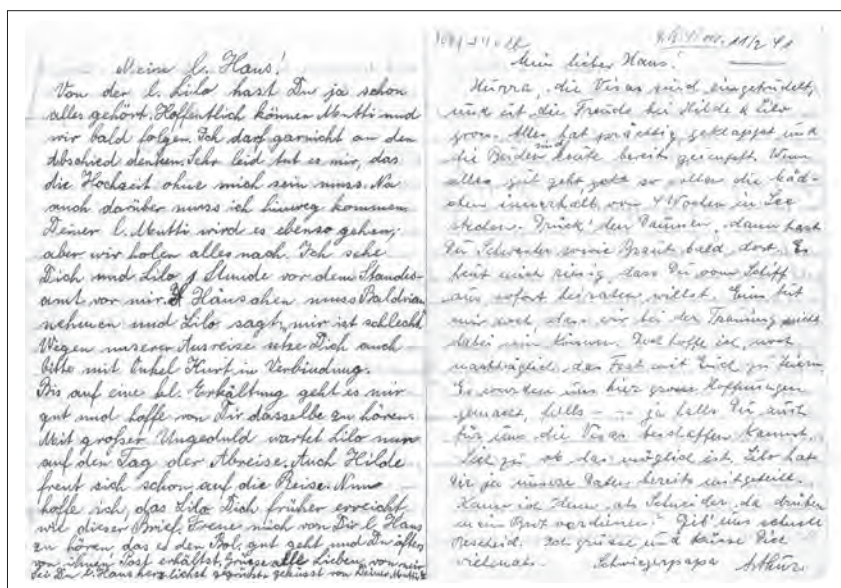 Meine l. Hans!
Von der l. Lilo hast Du ja schon
alles gehört. Hoffentlich können Mutti und
wir bald folgen. Ich darf garnicht an den
Abschied denken. Sehr leid tut es mir, das
die Hochzeit ohne mich sein muss. Na
auch darüber muss ich hinweg kommen
Deiner l. Mutti wird es ebenso gehen,
aber wir holen alles nach. Ich sehe
Dich und Lilo 1 Stunde vor dem Standes-
amt vor mir. Hänschen muss Baldrian
nehmen und Lilo sagt, mir ist schlecht
Wegen unserer Ausreise setze Dich auch
bitte mit Onkel Kurt in Verbindung.
Bis auf eine kl. Erkältung geht es mir
gut und hoffe von Dir dasselbe zu hören.
Mit großer Ungeduld wartet Lilo nun
auf den Tag der Abreise. Auch Hilde
freut sich schon auf die Reise. Nun
hoffe ich, das Lilo Dich früher erreicht
wie dieser Brief. Freue mich von Dir l. Hans
zu hören, das es den Bol. gut geht und Du öfters
von ihnen Post erhältst. Grüsse alle Lieben von mir
sei Du l. Hans herzlichst gegrüsst geküsst von Deiner
11/2 41
Mein lieber Hans!
Hurra, die Visas sind eingetrudelt,
und ist die Freude bei Hilde & Lilo
gross. Alles hat prächtig geklappt und
die Beiden sind heute bereits geimpft. Wenn
alles gut geht so sollen die Mäd-
chen innerhalb von 4 Wochen in See
stechen. Drück' den Daumen, dann hast
Du Schwester sowie Braut bald dort. Es
freut mich riesig, dass Du vom Schiff
aus sofort heiraten willst. Eins tut
mir weh, dass wir bei der Trauung nicht
dabei sein können. Doch hoffe ich, noch
nachträglich das Fest mit Euch zu feiern.
Es wurden uns hier grosse Hoffnungen
gemacht, falls - - ja falls Du auch
für uns die Visas beschaffen kannst.
Sieh zu ob das möglich ist. Lilo hat
Dir ja unsere Daten bereits mitgeteilt.
Kann ich denn als Schneider da drüben
mein Brot verdienen? Gib' uns schnell
Bescheid. Ich grüsse und küsse Dich
vielmals. Schwiegerpapa Arthur